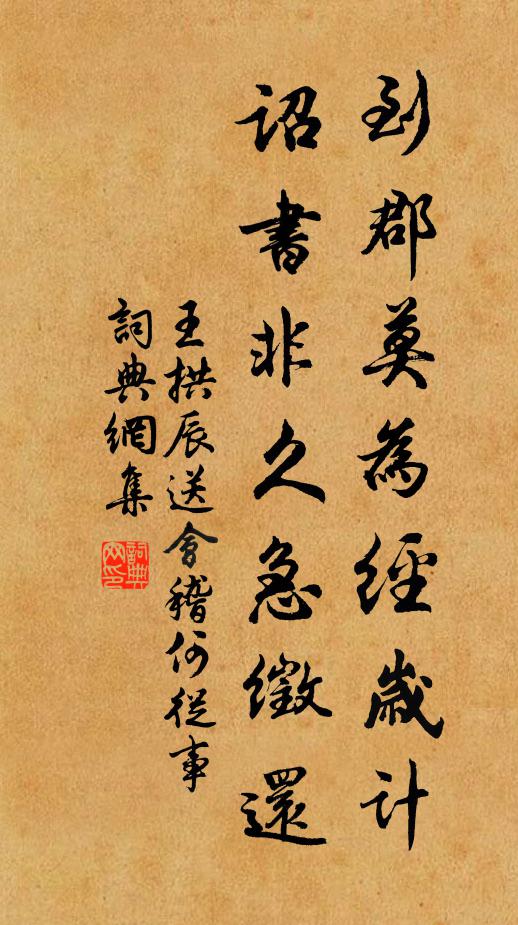 到郡莫為經歲計
詔書非久急徵還
王拱辰送會稽何從事
詞典網集
詞典網印